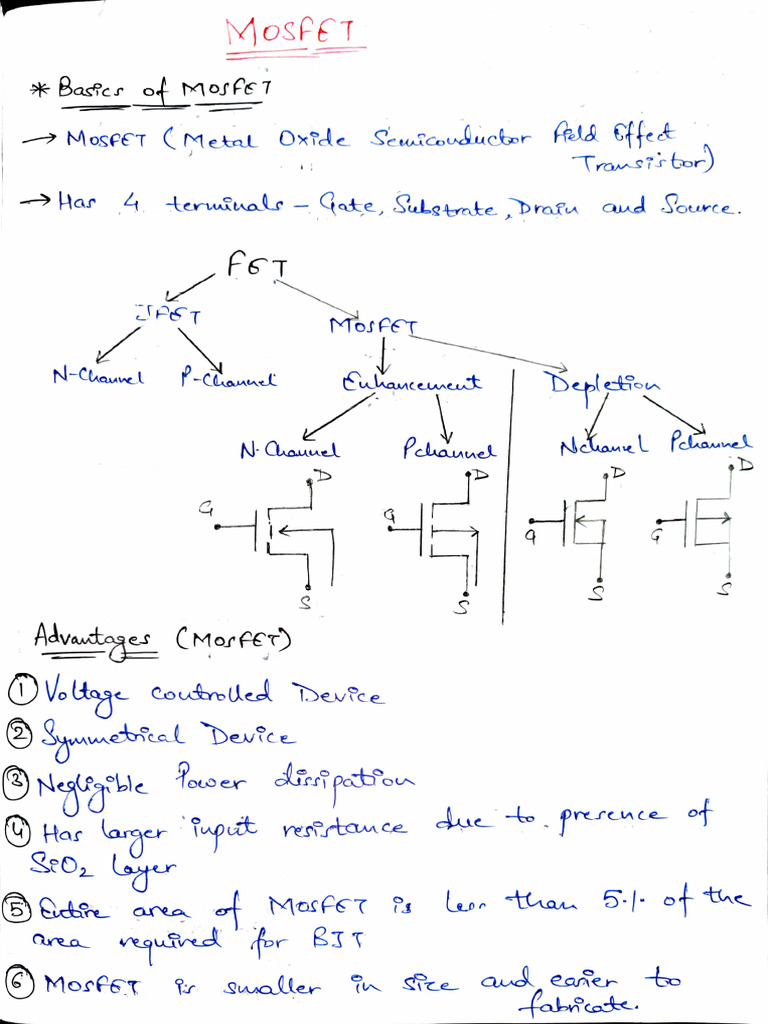 MOSFET
* Basics of MOSFET
→ MOSFET (Metal Oxide Semiconductor Field Effect
Transistor)
→ Has 4 terminals – Gate, Substrate, Drain and Source.
FET
JFET
MOSFET
N-Channel P-Channel Enhancement Depletion
N-Channel Pchannel Nchannel Pchannel
D D D D
G G G G
S S S S
Advantages (MOSFET)
① Voltage controlled Device
② Symmetrical Device
③ Negligible Power dissipation
④ Has larger input resistance due to presence of
SiO₂ layer
⑤ Entire area of MOSFET is less than 5% of the
area required for BJT
⑥ MOSFET is smaller in size and easier to
fabricate.